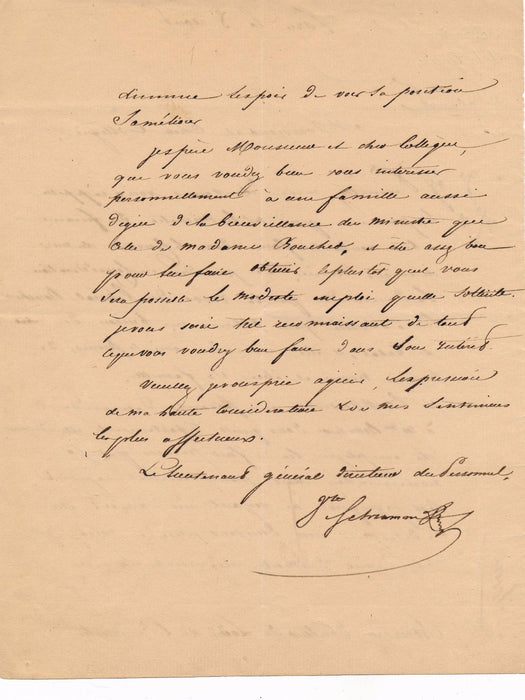 l'espoir de voir sa position
s'améliorer
J'espère Monsieur et cher Collègue,
que vous voudrez bien vous intéresser
personnellement à une famille aussi
digne de la bienveillance du ministre que
celle de madame Bouchet, et être assez bon
pour lui faire obtenir le plustot qu'il vous
sera possible le modeste emploi qu'elle sollicite.
je vous serai très reconnaissant de tout
ce que vous voudrez bien faire dans son intérêt
Veuillez je vous prie agréer, l'expression
de ma haute considération & de mes sentimens
les plus affectueux.
Le Lieutenant général directeur du Personnel,
Schramm